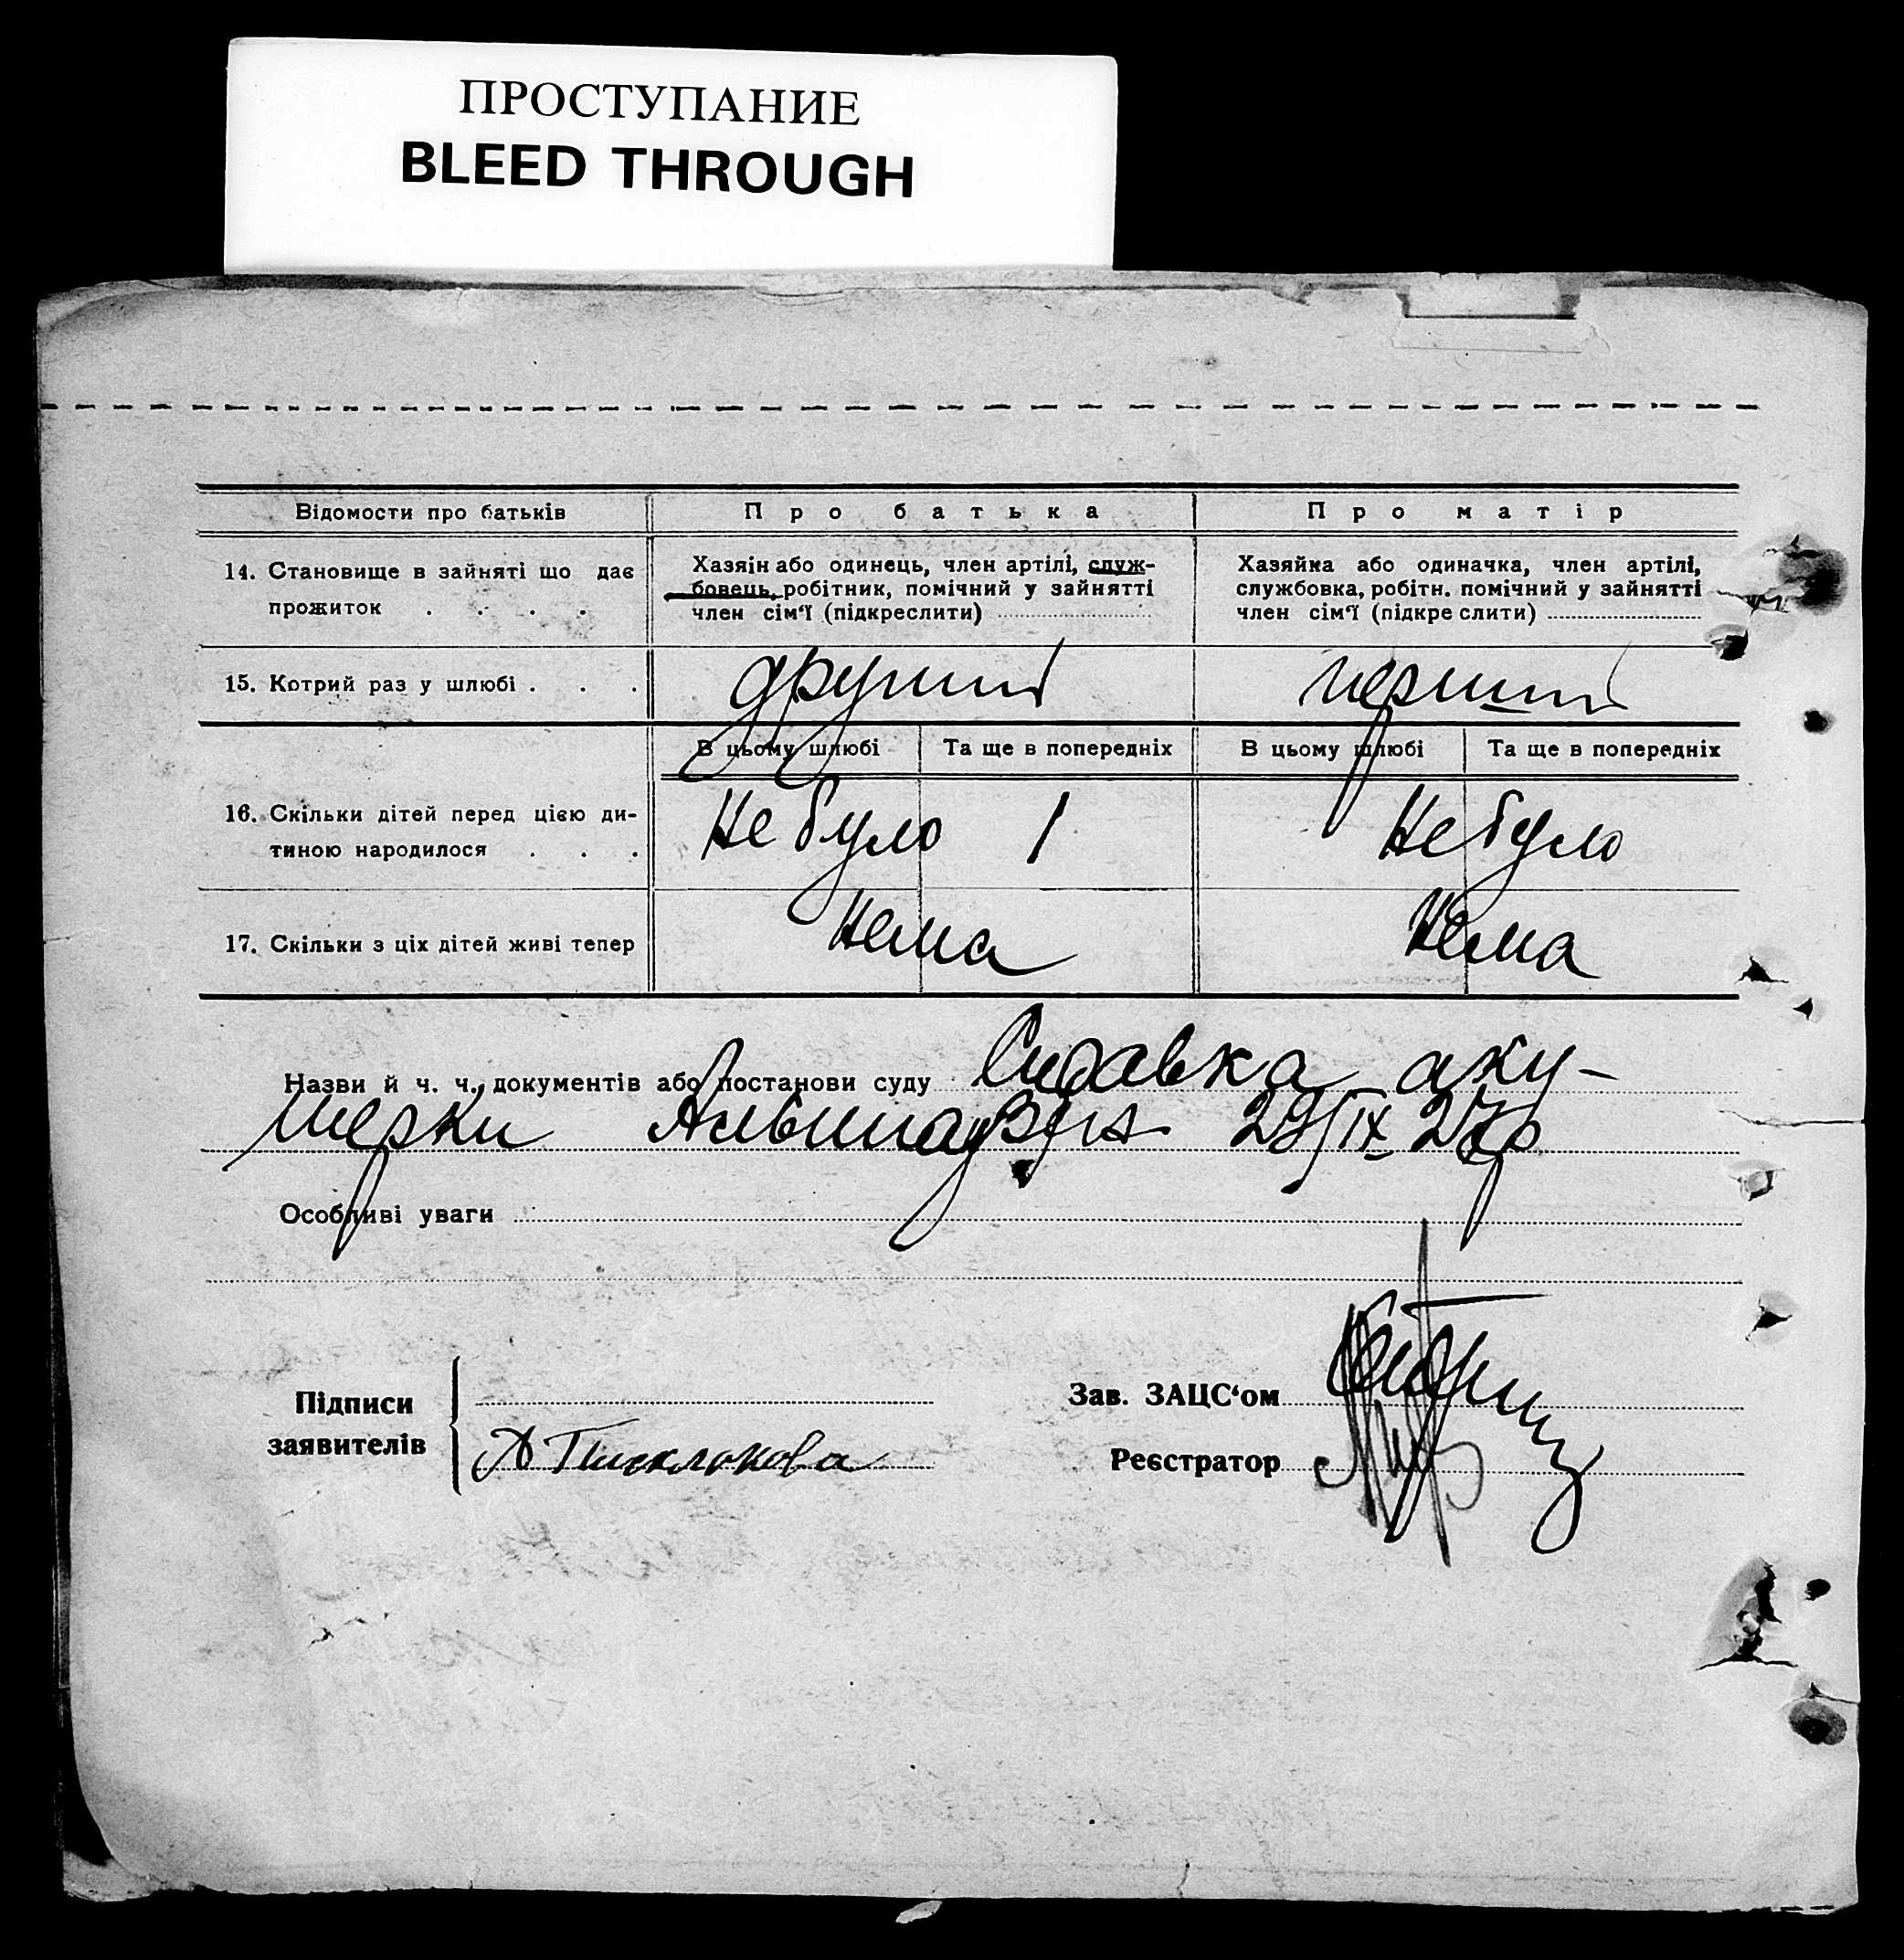 ПРОСТУПАНИЕ
BLEED THROUGH
Відомости про батьків
Про батька
Про матір
14. Становище в зайняті що дає
прожиток . . . .
Хазяін або одинець, член артілі, служ-
бовець, робітник, помічний у зайнятті
член сім‘ї (підкреслити)
Хазяйка або одиначка, член артілі,
службовка, робітн. помічний у зайнятті
член сім‘ї (підкре слити)
15. Котрий раз у шлюбі . . .
другий
перший
В цьому шлюбі
Та ще в попередніх
В цьому шлюбі
Та ще в попередніх
16. Скільки дітей перед цією ди-
тиною народилося . . .
Не було
1
Не було
17. Скільки з ціх дітей живі тепер
Нема
Нема
Назви й ч. ч., документів або постанови суду Справка аку-
шерки 29/IX 27р
Особливі уваги
Підписи
заявителів
Зав. ЗАЦС‘ом
Реєстратор